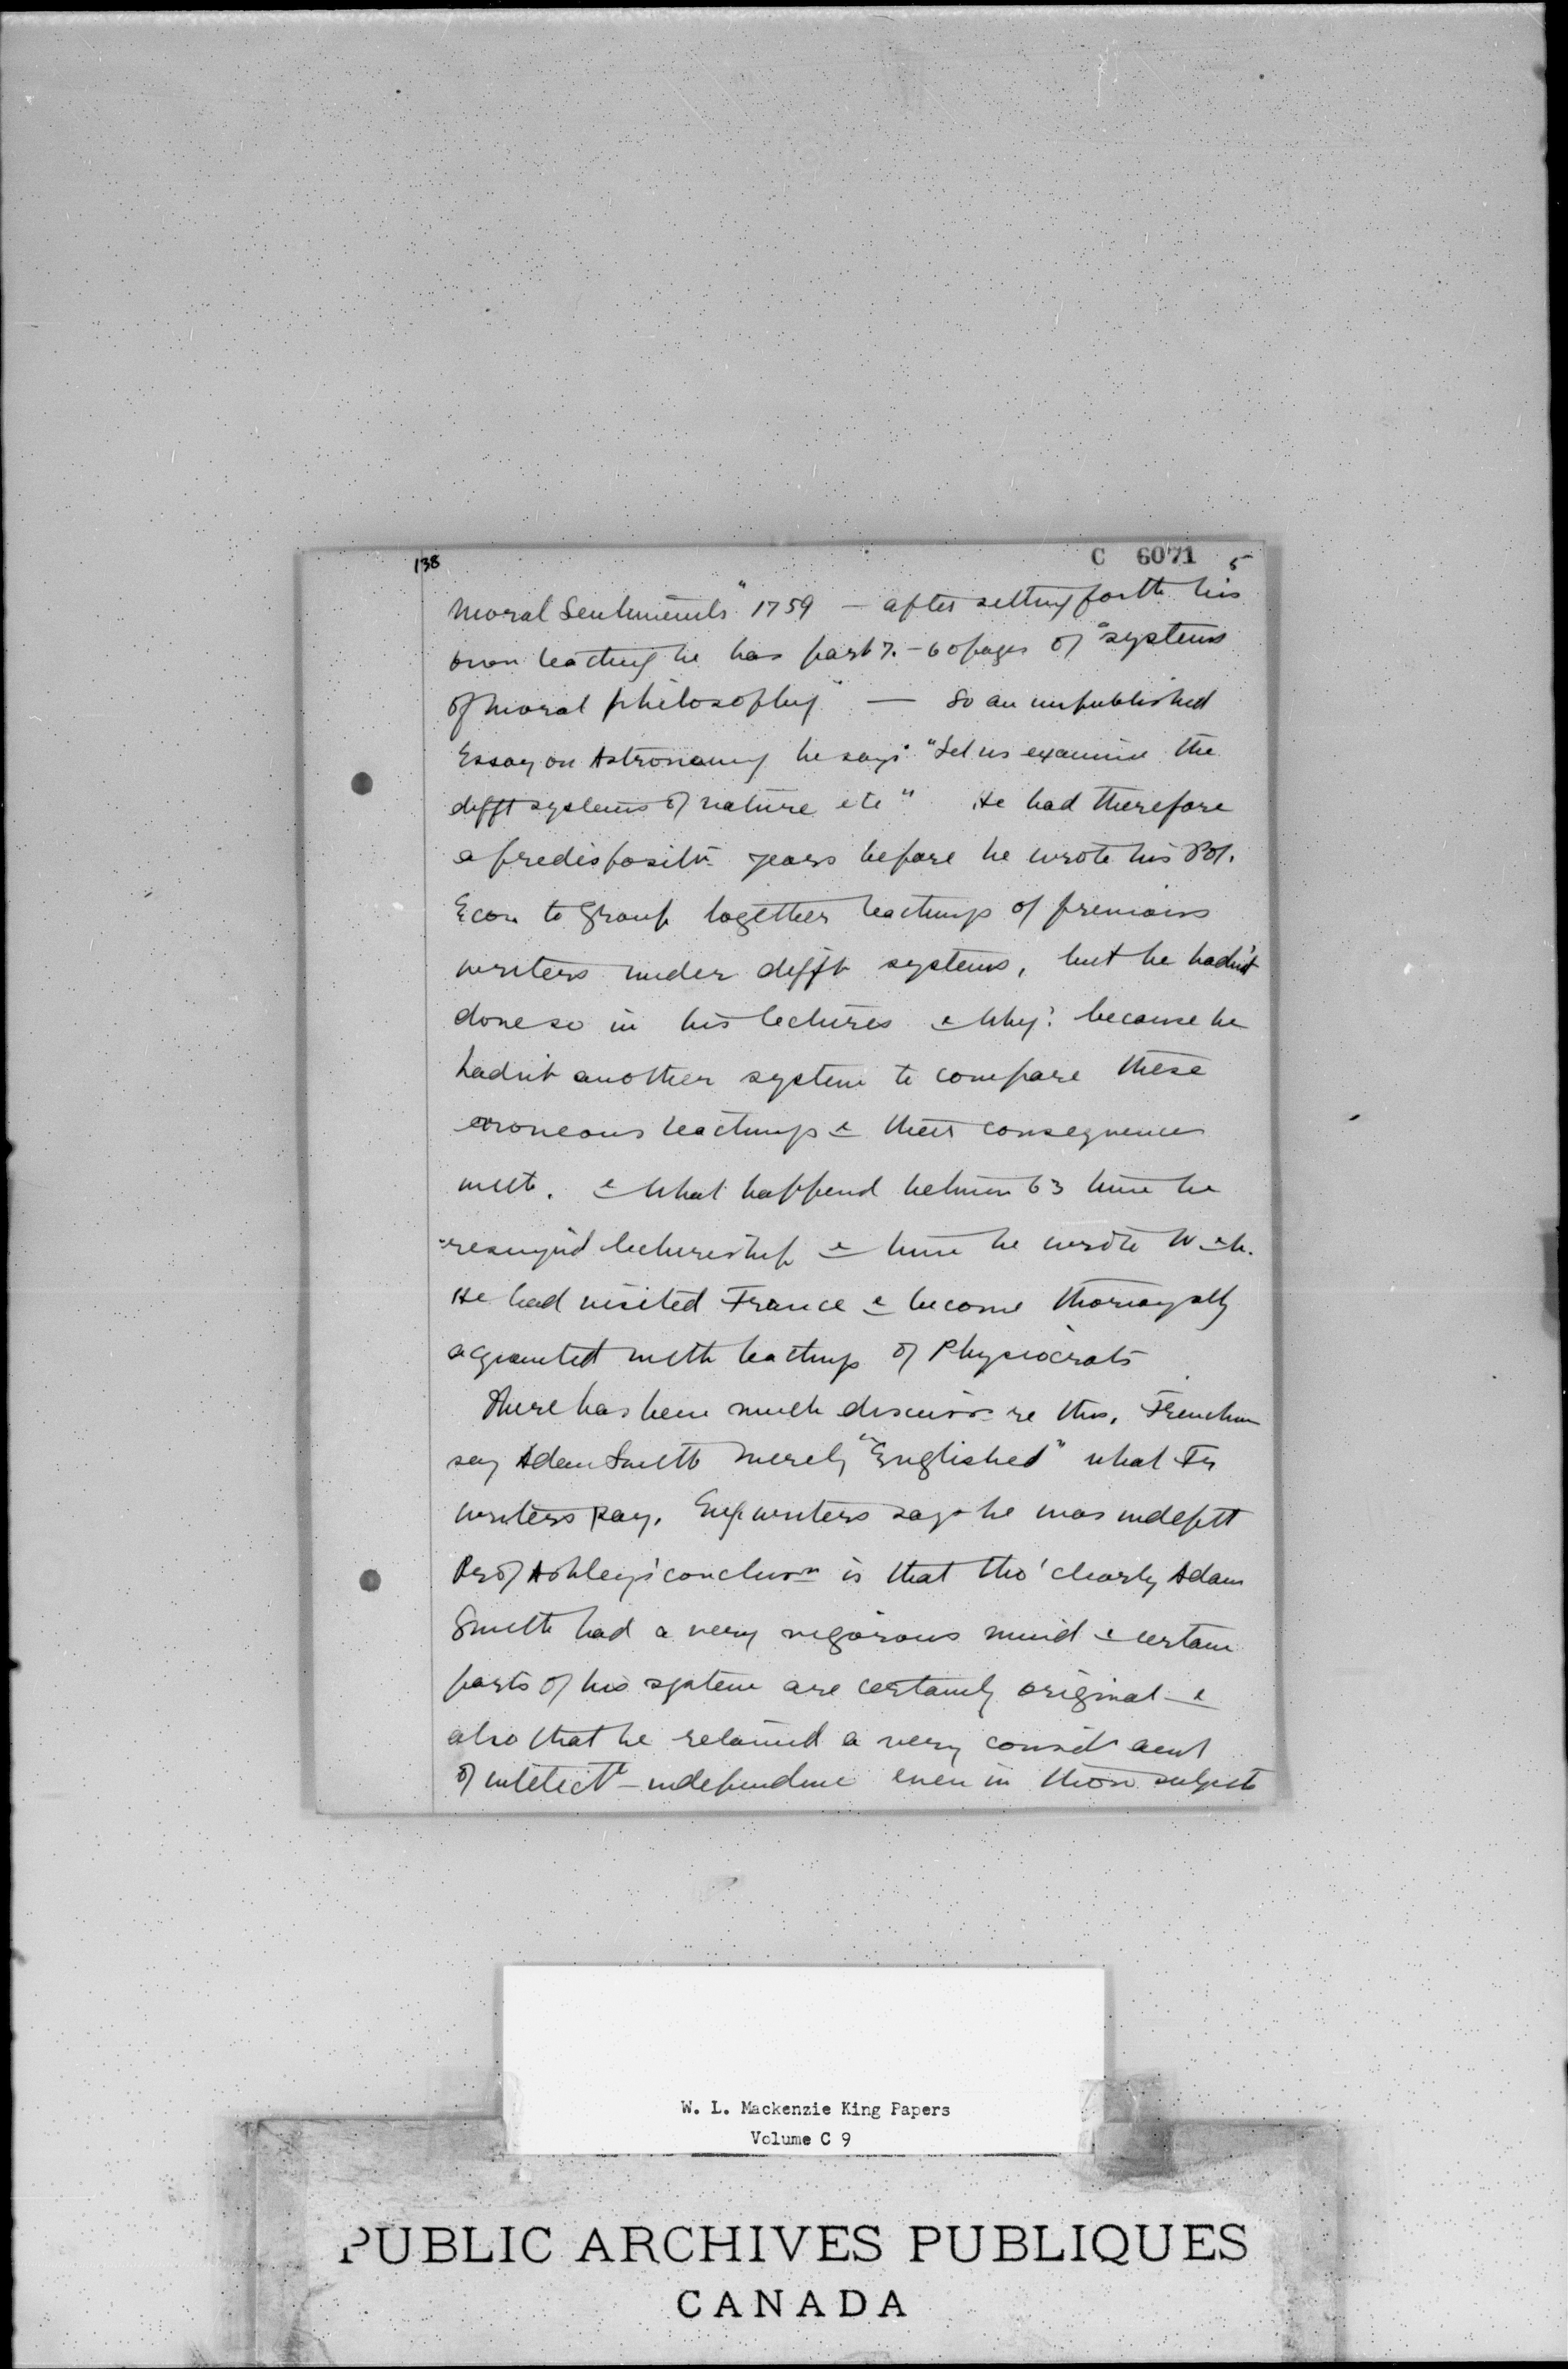 138
C 6071 5
Moral Sentiments" 1759 — after setting forth his
own teaching he has part 7. - 60 pages of "systems
of moral philosophy" — So an unpublished
Essay on Astronomy he says "Let us examine the
difft systems of nature etc" He had therefore
a predispositn years before he wrote his Pol.
Econ to group together teachings of previous
writers under difft systems, but he hadn't
done so in his lectures & why? because he
hadn't another system to compare these
erroneous teachings & their consequences
with. & what happend between 63 time he
resigned lectureship & time he wrote W & N.
He had visited France & become thoroughly
acquainted with teachings of Physiocrats
There has been much discussn re this. Frenchmen
say Adam Smith merely "Englished" what Fr
writers say. Eng writers say he was indepdt
Prof Ashley's conclusn is that tho' clearly Adam
Smith had a very vigorous mind & certain
parts of his system are certainly original &
also that he retained a very consid amt
of intellectl independence even in those subjects
W. L. Mackenzie King Papers
Volume C 9
PUBLIC ARCHIVES PUBLIQUES
CANADA